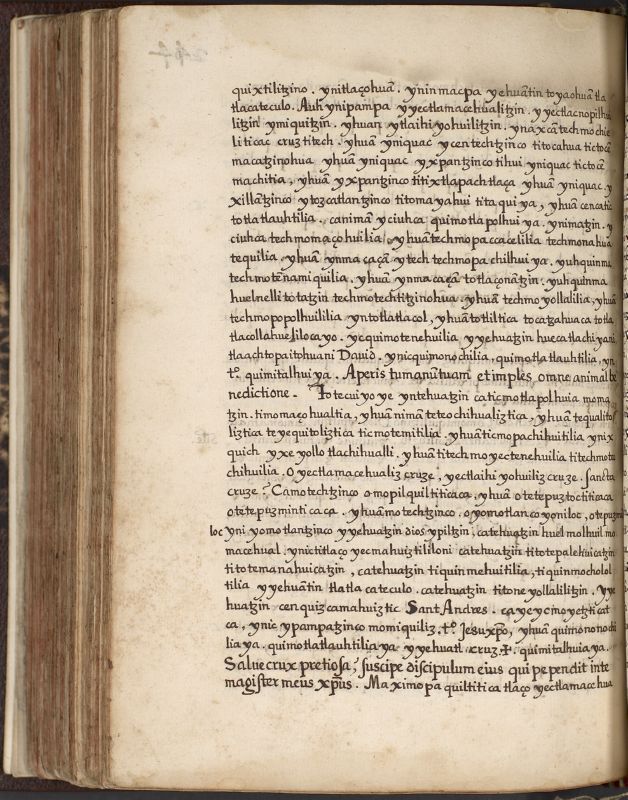 quixtilitzino. ynitlaçohuā. ynin macpa yehuātin toyaohuā tla
tlacateculo. Auh ynipampa yyectlamacehualitzin. yyectlacnopilhui
litzin ymiquitzin. yhuan ytlaihiyohuilitzin. ynaxcā techmochie
liticac cruztitech. yhuā yniquac ycentechtzinco titocahua tictocē
macatzinohua yhuā yniquac yxpantzinco tihui yniquac tictocē
machitia, yhuā yxpantzinco titixtlapachtlaça yhuā yniquac. y
xillātzinco ytozcatlantzinco titomayahui titaquiya, yhuā cencatic
totlatlauhtilia. canimā yciuhca quimotlapolhuiya. ynimatzin. y
ciuhca techmomaçohuilia, yhuā techmopaccacelilia techmonahua
tequilia. yhuā ynmacaçā ytech techmopachilhuiya. yuhquinma
techmotēnamiquilia. yhuā ynmacaçā totlaçonātzin. yuhquinma
huelnelli totatzin techmotechtitzinohua. yhuā techmoyollalilia, yhuā
techmopopolhuililia yntotlatlacol, yhuā totliltica tocatzahuaca totla
tlacollahuelilocayo. yequimotenehuilia yyehuatzin huecatlachiyani
tlaachtopaitohuani David. ynicquimonochilia, quimotlatlauhtilia, yn
tº. quimitalhuiya. Aperis tu manū tuam et imples omne animal be
nedictione. Totecuiyoye yntehuatzin caticmotlapolhuia moma
tzin. timomaçohualtia, yhuā nimā teteochihualiztica, yhuā tequalitto
liztica teyequitoliztica ticmotemitilia. yhuā ticmopachihuitilia ynix
quich yxeyollo tlachihualli. yhuā titechmoyectenehuilia titechmote
chihuilia. O yectlamacehualiz cruze, yectlaihiyohuiliz cruze. sancta
cruze? Camotechtzinco omopilquiltiticaca. yhuā otetepuztoctiticaca
otetepuzminticaca. yhuā motechtzinco. oyomotlanco yoniloc, otepuzmi
loc yni yomotlantzinco yyehuatzin dios ypiltzin, catehuatzin huel molhuil mo
macehual. ynictitlaçoyecmahuiztililoni catehuatzin titotepalehuicatzin
titotemanahuicatzin, catehuatzin tiquinmehuitilia, tiquinmocholol
tilia yyehuātin tlatlacateculo. catehuatzin titoneyollalilitzin. yye
huatzin cenquizcamahuiztic Sant Andres. ca yeyc moyetzticat
ca, ynic ypampatzinco momiquiliz. tº. Jesu xpō, yhuā quimononochi
liaya. quimotlatlauhtiliaya yyehuatl cruz ✠. quimitalhuiaya.
Salue crux pretiosa; suscipe discipulum eius qui pependit in te
magister meus xpūs. Ma ximopaquiltitica tlaçoyectlamacehua